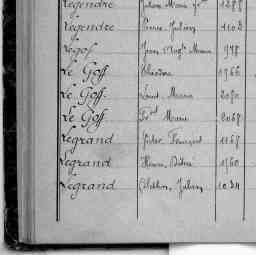 Legendre Julien Marie 1288
Legendre Pierre Julien 1103
Legof Jean Aug. Marie 978
Le Goff Théodore 1966
Le Goff Louis Marie 2080
Le Goff Marie 2068
Legrand Victor François 1168
Legrand Henri Désiré 1760
Legrand Julien 1034